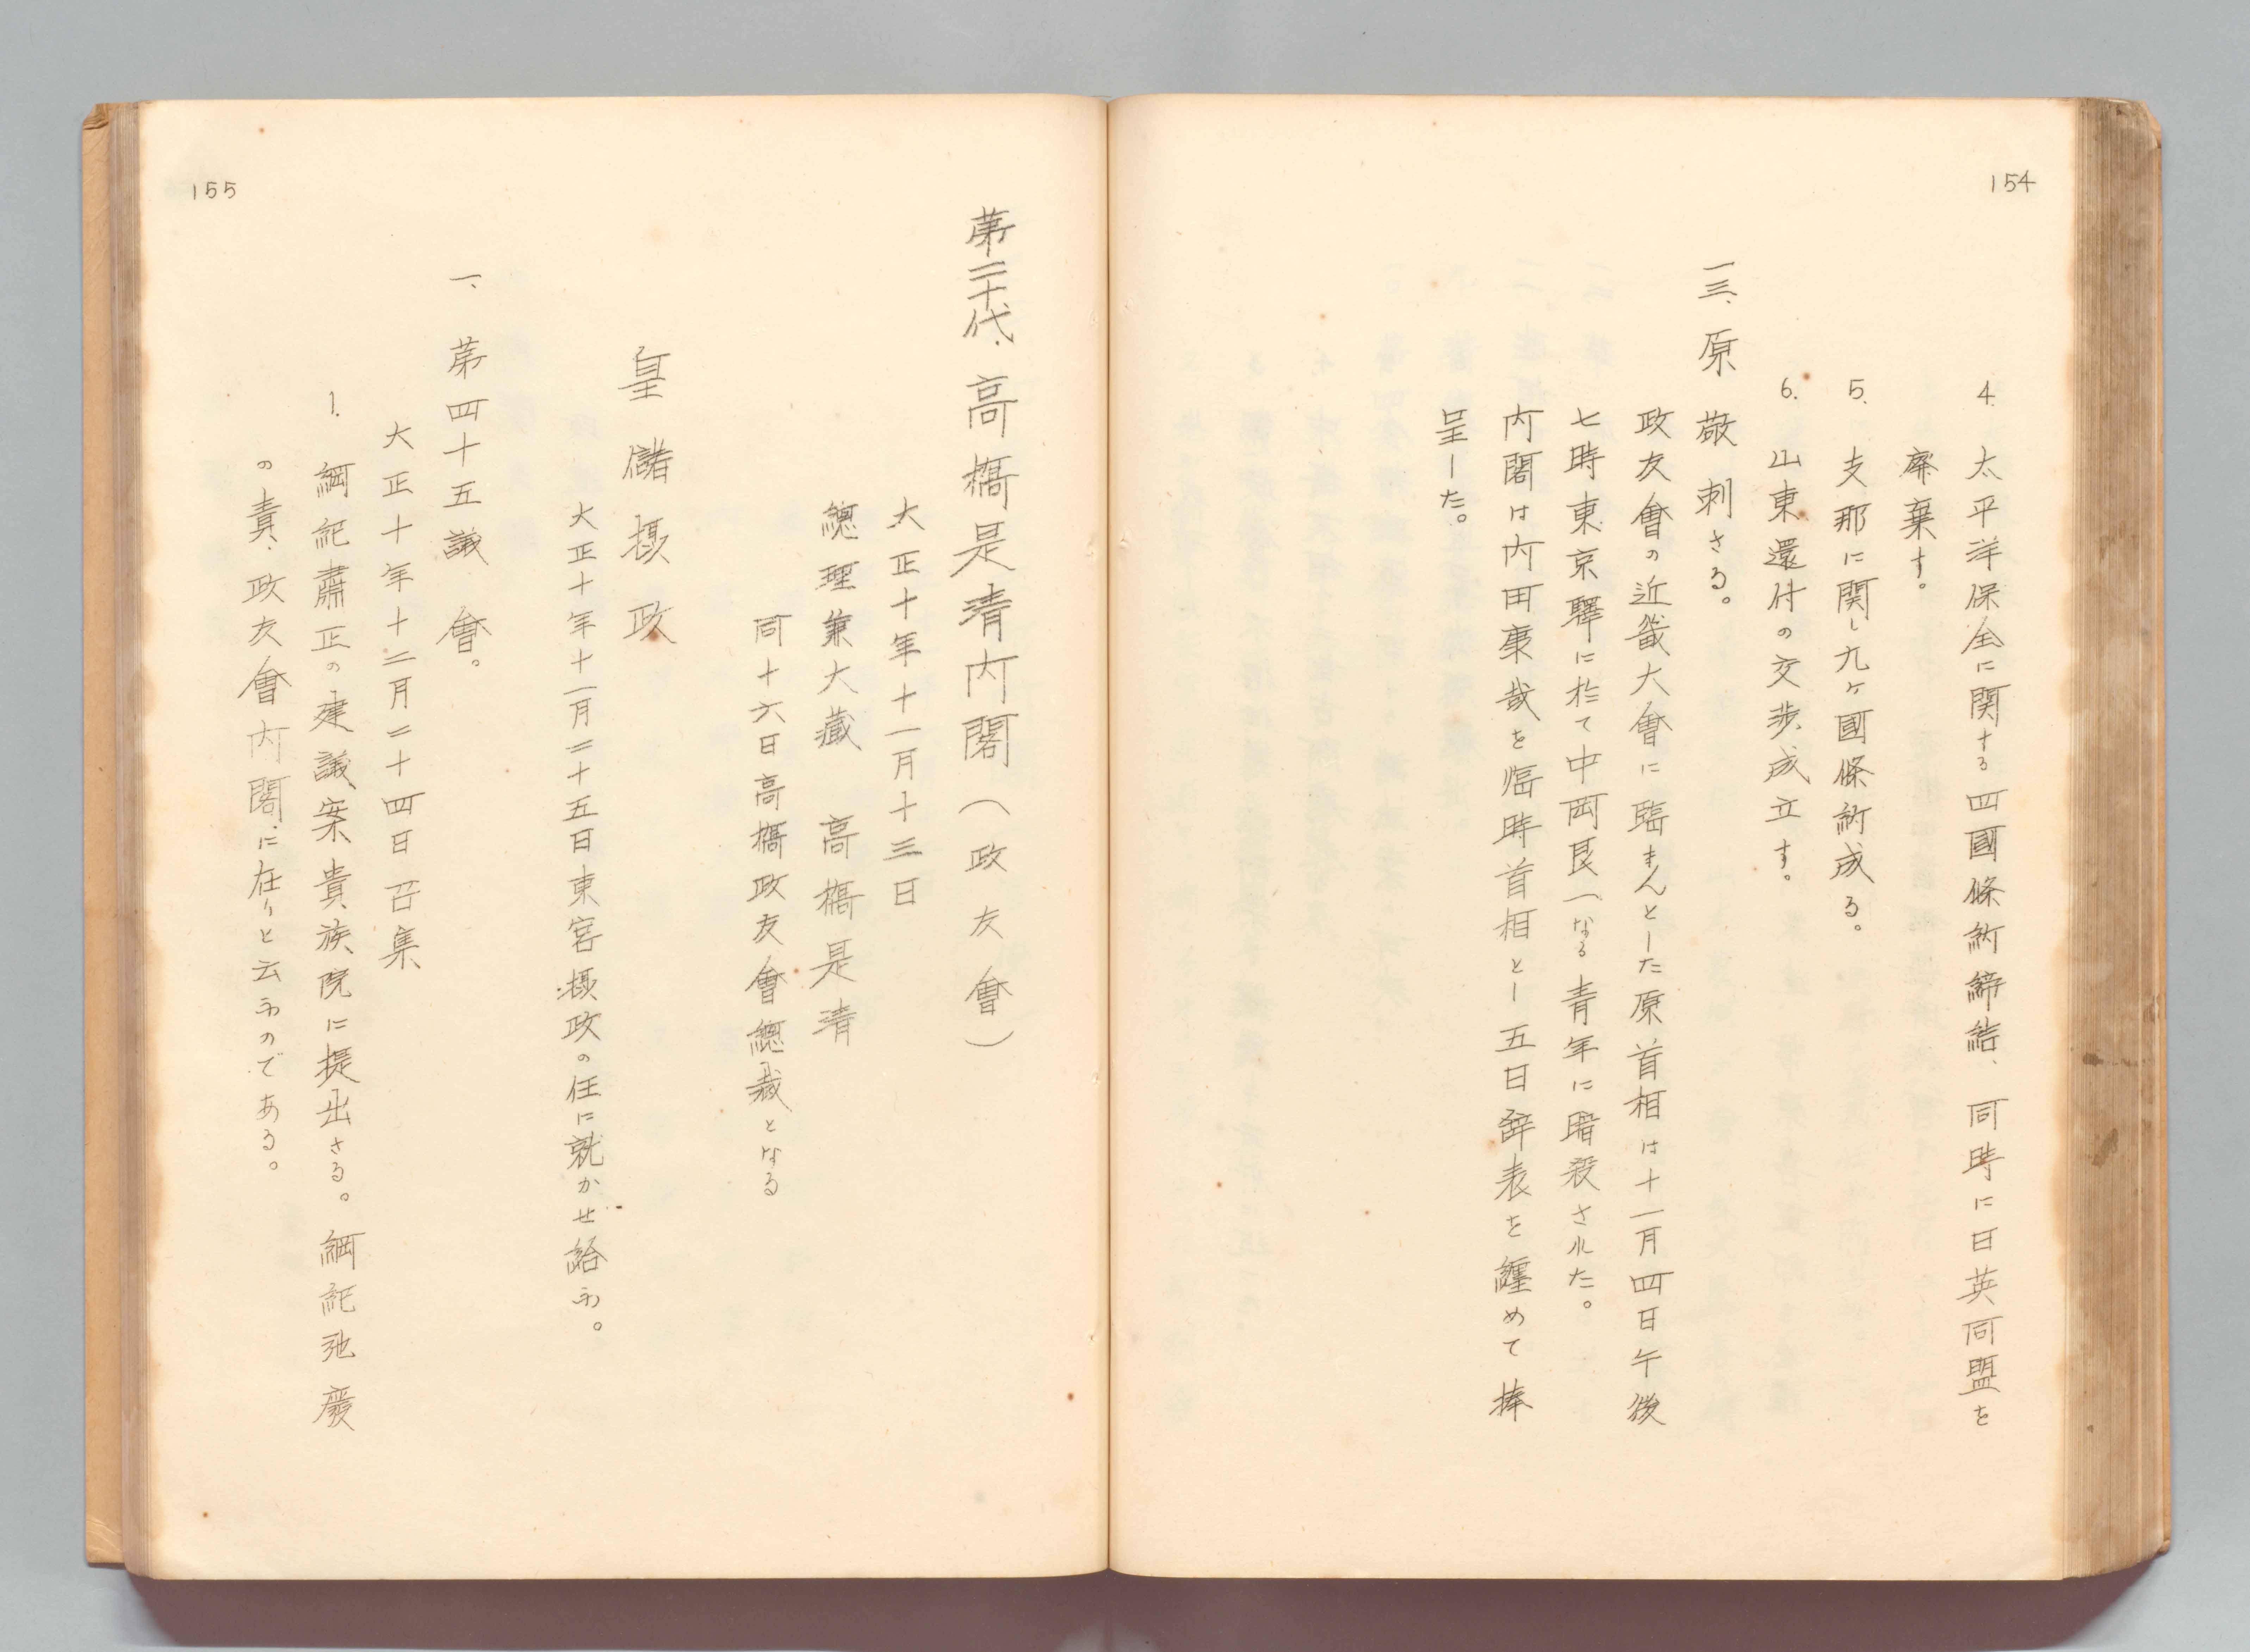 154
4. 太平洋保全に関する四國條約締結、同時に日英同盟を
廃棄す。
5. 支那に関し九ヶ國條約成る。
6. 山東還付の交渉成立す。
一三、原敬刺さる。
政友會の近畿大會に臨まんとした原首相は十一月四日午後
七時東京驛に於て中岡艮一なる青年に暗殺された。
内閣は内田康哉を臨時首相とし五日辞表を纏めて捧
呈した。
第二十代、高橋是清内閣(政友會)
大正十年十一月十三日
總理兼大藏 高橋是清
同十六日高橋政友會總裁となる
皇儲摂政
大正十年十一月二十五日東宮摂政の任に就かせ給ふ。
一、第四十五議會。
大正十年十二月二十四日召集
1. 綱紀肅正の建議案貴族院に提出さる。綱紀弛廢
の責、政友會内閣に在りと云ふのである。
155